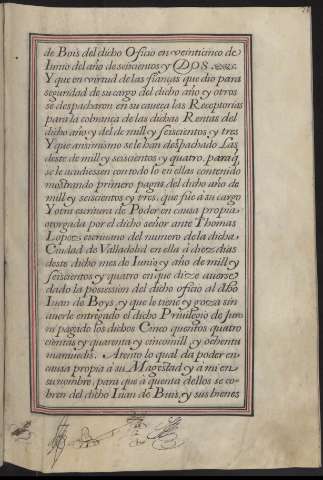 de Bois del dicho Oficio en veinticinco de
Iunio del año de seiscientos y Dos.
Y que en virtud de las fianças que dio para
seguridad de su cargo del dicho año y otros
se despacharon en su caueça las Receptorias
para la cobrança de las dichas Rentas del
dicho año y del de mill y seiscientos y tres
Y que ansimismo se le han despachado las
deste de mill y seiscientos y quatro. para q̃
se le acudiessen con todo lo en ellas contenido
mostrando primero pagas del dicho año de
mill y seiscientos y tres, que fue a su cargo
Y otra escritura de Poder en causa propia
otorgada por el dicho señor ante Thomas
Lopez escriuano del numero de la dicha
Ciudad de Valladolid en ella a diez dias
deste dicho mes de Iunio y año de mill y
seiscientos y quatro en que dize auerse
dado la possession del dicho oficio al dho
Iuan de Boys, y que le tiene y goza sin
auerle entregado el dicho Priuilegio de Juro
ni pagado los dichos Cinco quentos quatro
cientas y quarenta y cinco mill y ochenta
marauedis. Atento lo qual da poder en
causa propia a su Magestad y a mi en
su nombre, para que a quenta dellos se co-
bren del dicho Iuan de Buis, y sus bienes